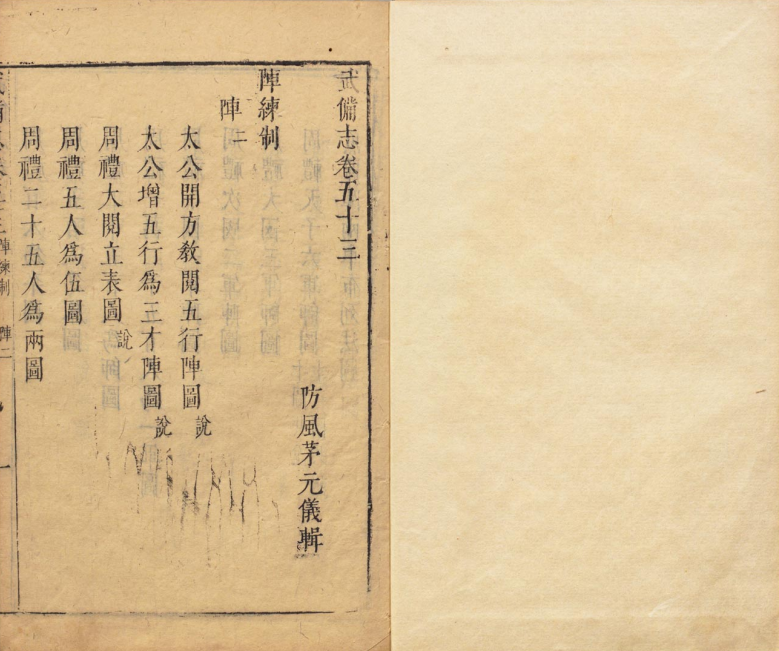 武備志卷五十三
防風茅元儀輯
陣練制
陣二
太公開方教閱五行陣圖說
太公增五行為三才陣圖說
周禮大閱立表圖說
周禮五人為伍圖
周禮二十五人為兩圖
陣練制 陣二
一